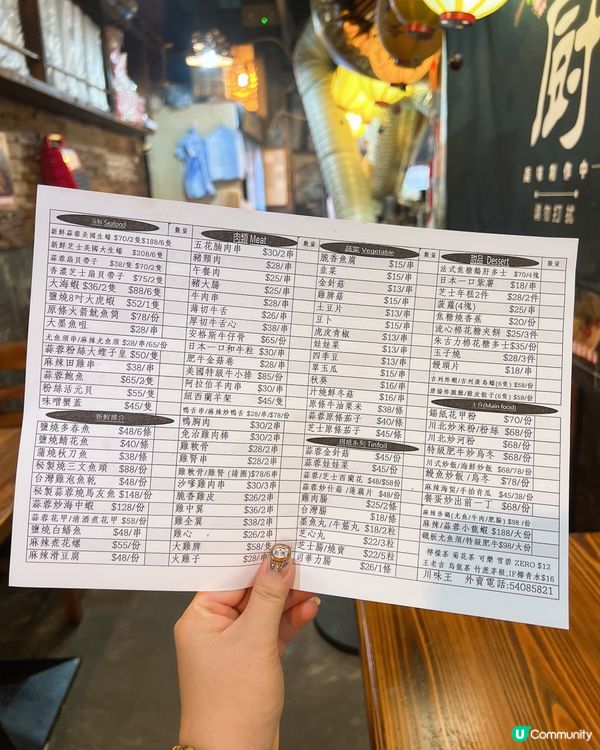 厨
川味創作中
請勿打扰
海鮮 Seafood 數量
新鮮蒜蓉美國生蠔 $70/2隻$188/6隻
新鮮芝士美國大生蠔 $208/6隻
蒜蓉扇貝帶子 $38/隻 $70/2隻
香濃芝士扇貝帶子 $75/2隻
大海蝦 $36/2隻 $88/6隻
鹽燒8吋大虎蝦 $52/1隻
原條火箭魷魚筒 $78/份
大墨魚咀 $28/串
尤魚須串/原條尤魚須 $28/串/65/份
蒜蓉粉絲大蟶子皇 $50/隻
麻辣田雞串 $38/串
蒜蓉鮑魚 $65/3隻
粉絲活元貝 $55/隻
味噌蟹蓋 $45/隻
新鮮推介
鹽燒多春魚 $48/6條
鹽燒鯖花魚 $40/條
蒲燒秋刀魚 $38/條
秘製燒三文魚頭 $88/份
台灣雞泡魚乾 $48/份
秘製蒜蓉燒馬友魚 $148/份
蒜蓉炒海中蝦 $128/份
蒜蓉花甲/清酒煮花甲 $58/份
鹽燒白鱔魚 $48/串
麻辣煮花螺 $55/份
麻辣滑豆腐 $48/份
肉類 Meat 數量
五花腩肉串 $30/2串
豬頸肉 $28/串
午餐肉 $25/串
豬大腸 $25/串
牛肉串 $28/串
薄切牛舌 $26/串
厚切牛舌心 $38/串
安格斯牛仔骨 $65/份
日本一口和牛粒 $30/串
肥牛金菇卷 $28/串
美國特級牛小排 $85/份
阿拉伯羊肉串 $30/串
紐西蘭羊架 $45/隻
鴨舌串/麻辣炒鴨舌 $28/串/$78/份
鴨胸肉 $30/2串
免治雞肉棒 $30/2串
雞軟骨 $28/2串
雞腎串 $28/2串
雞軟骨/雞腎 $78/6串
沙嗲雞肉串 $30/3串
脆香雞皮 $26/2串
雞中翼 $36/2串
雞全翼 $38/2串
雞心 $26/2串
大雞髀 $58/隻
火雞子 $28/串
蔬菜 Vegetable 數量
脆香魚腐 $15/串
韭菜 $15/串
金針菇 $13/串
雞髀菇 $15/串
土豆片 $13/串
豆卜 $13/串
虎皮青椒 $13/串
娃娃菜 $13/串
四季豆 $13/串
翠玉瓜 $15/串
秋葵 $16/串
汁燒鮮冬菇 $16/串
原條牛油粟米 $38/條
蒜蓉原條茄子 $40/條
芝士原條茄子 $45/條
錫紙系列 Tinfoil
蒜蓉金針菇 $45/份
蒜蓉娃娃菜 $45/份
蒜蓉/芝士西蘭花 $48/$58份
蒜蓉炒仔菇/蓮藕片 $48/份
雞肉腸 $25/2條
台灣腸 $18/條
墨魚丸/牛筋丸 $18/2條
芝心丸 $22/3粒
芝士腸/燒賣 $22/5粒
司華力腸 $26/1條
甜品 Dessert 數量
法式焦糖鵝肝多士 $70/4塊
日本一口紫薯 $18/串
芝士年糕2件 $28/2件
菠蘿(4塊) $25/串
焦糖燒香蕉 $20/份
流心棉花糖夾餅 $25/3件
朱古力棉花糖多士$35/份
玉子燒 $28/3件
饅頭片 $18/串
吉列炸蝦/吉列廣島蠔(6隻) $58/份
主食(Main food)
錫紙花甲粉 $70/份
川北炒米粉/粉絲 $68/份
川北炒河粉 $68/份
特級肥牛炒烏冬 $68/份
川式炒飯/海鮮炒飯 $68/78/份
鰻魚炒飯/烏冬 $78/份
麻辣海蜇/手拍青瓜 $45/38/份
餐蛋炒出前一丁 $68/份
麻辣香鍋(尤魚/牛肉/肥腸) $98/份
麻辣/蒜蓉小龍蝦 $188/大份
鐵板尤魚須/特級肥牛$98/大份
檸檬茶 菊花茶 可樂 雪碧 ZERO $12
王老吉 烏龍茶 竹蔗茅根,IF椰青水$16
川味王 外賣電話:54085821
U Community